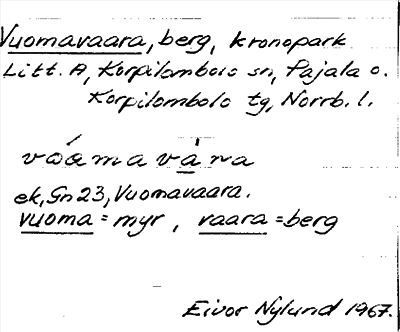 Vuomavaara, berg, kronopark
Litt. A, Korpilombolo sn, Pajala o.
Korpilombolo tg, Norrb. l.
vóamavàra
ek, Gn 23, Vuomavaara.
vuoma = myr, vaara = berg
Eivor Nylund 1967.